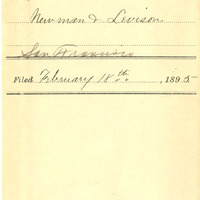 Newman & Levison
San Francisco
Filed February 18th, 1895